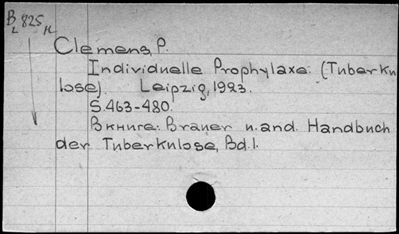 B 825
L H
Clemens, P.
Individuelle Prophylaxe (Tuberku
lose). Leipzig, 1923.
S. 463-480
В книге: Brauer u. and. Handbuch
der Tuberkulose, Bd. 1.